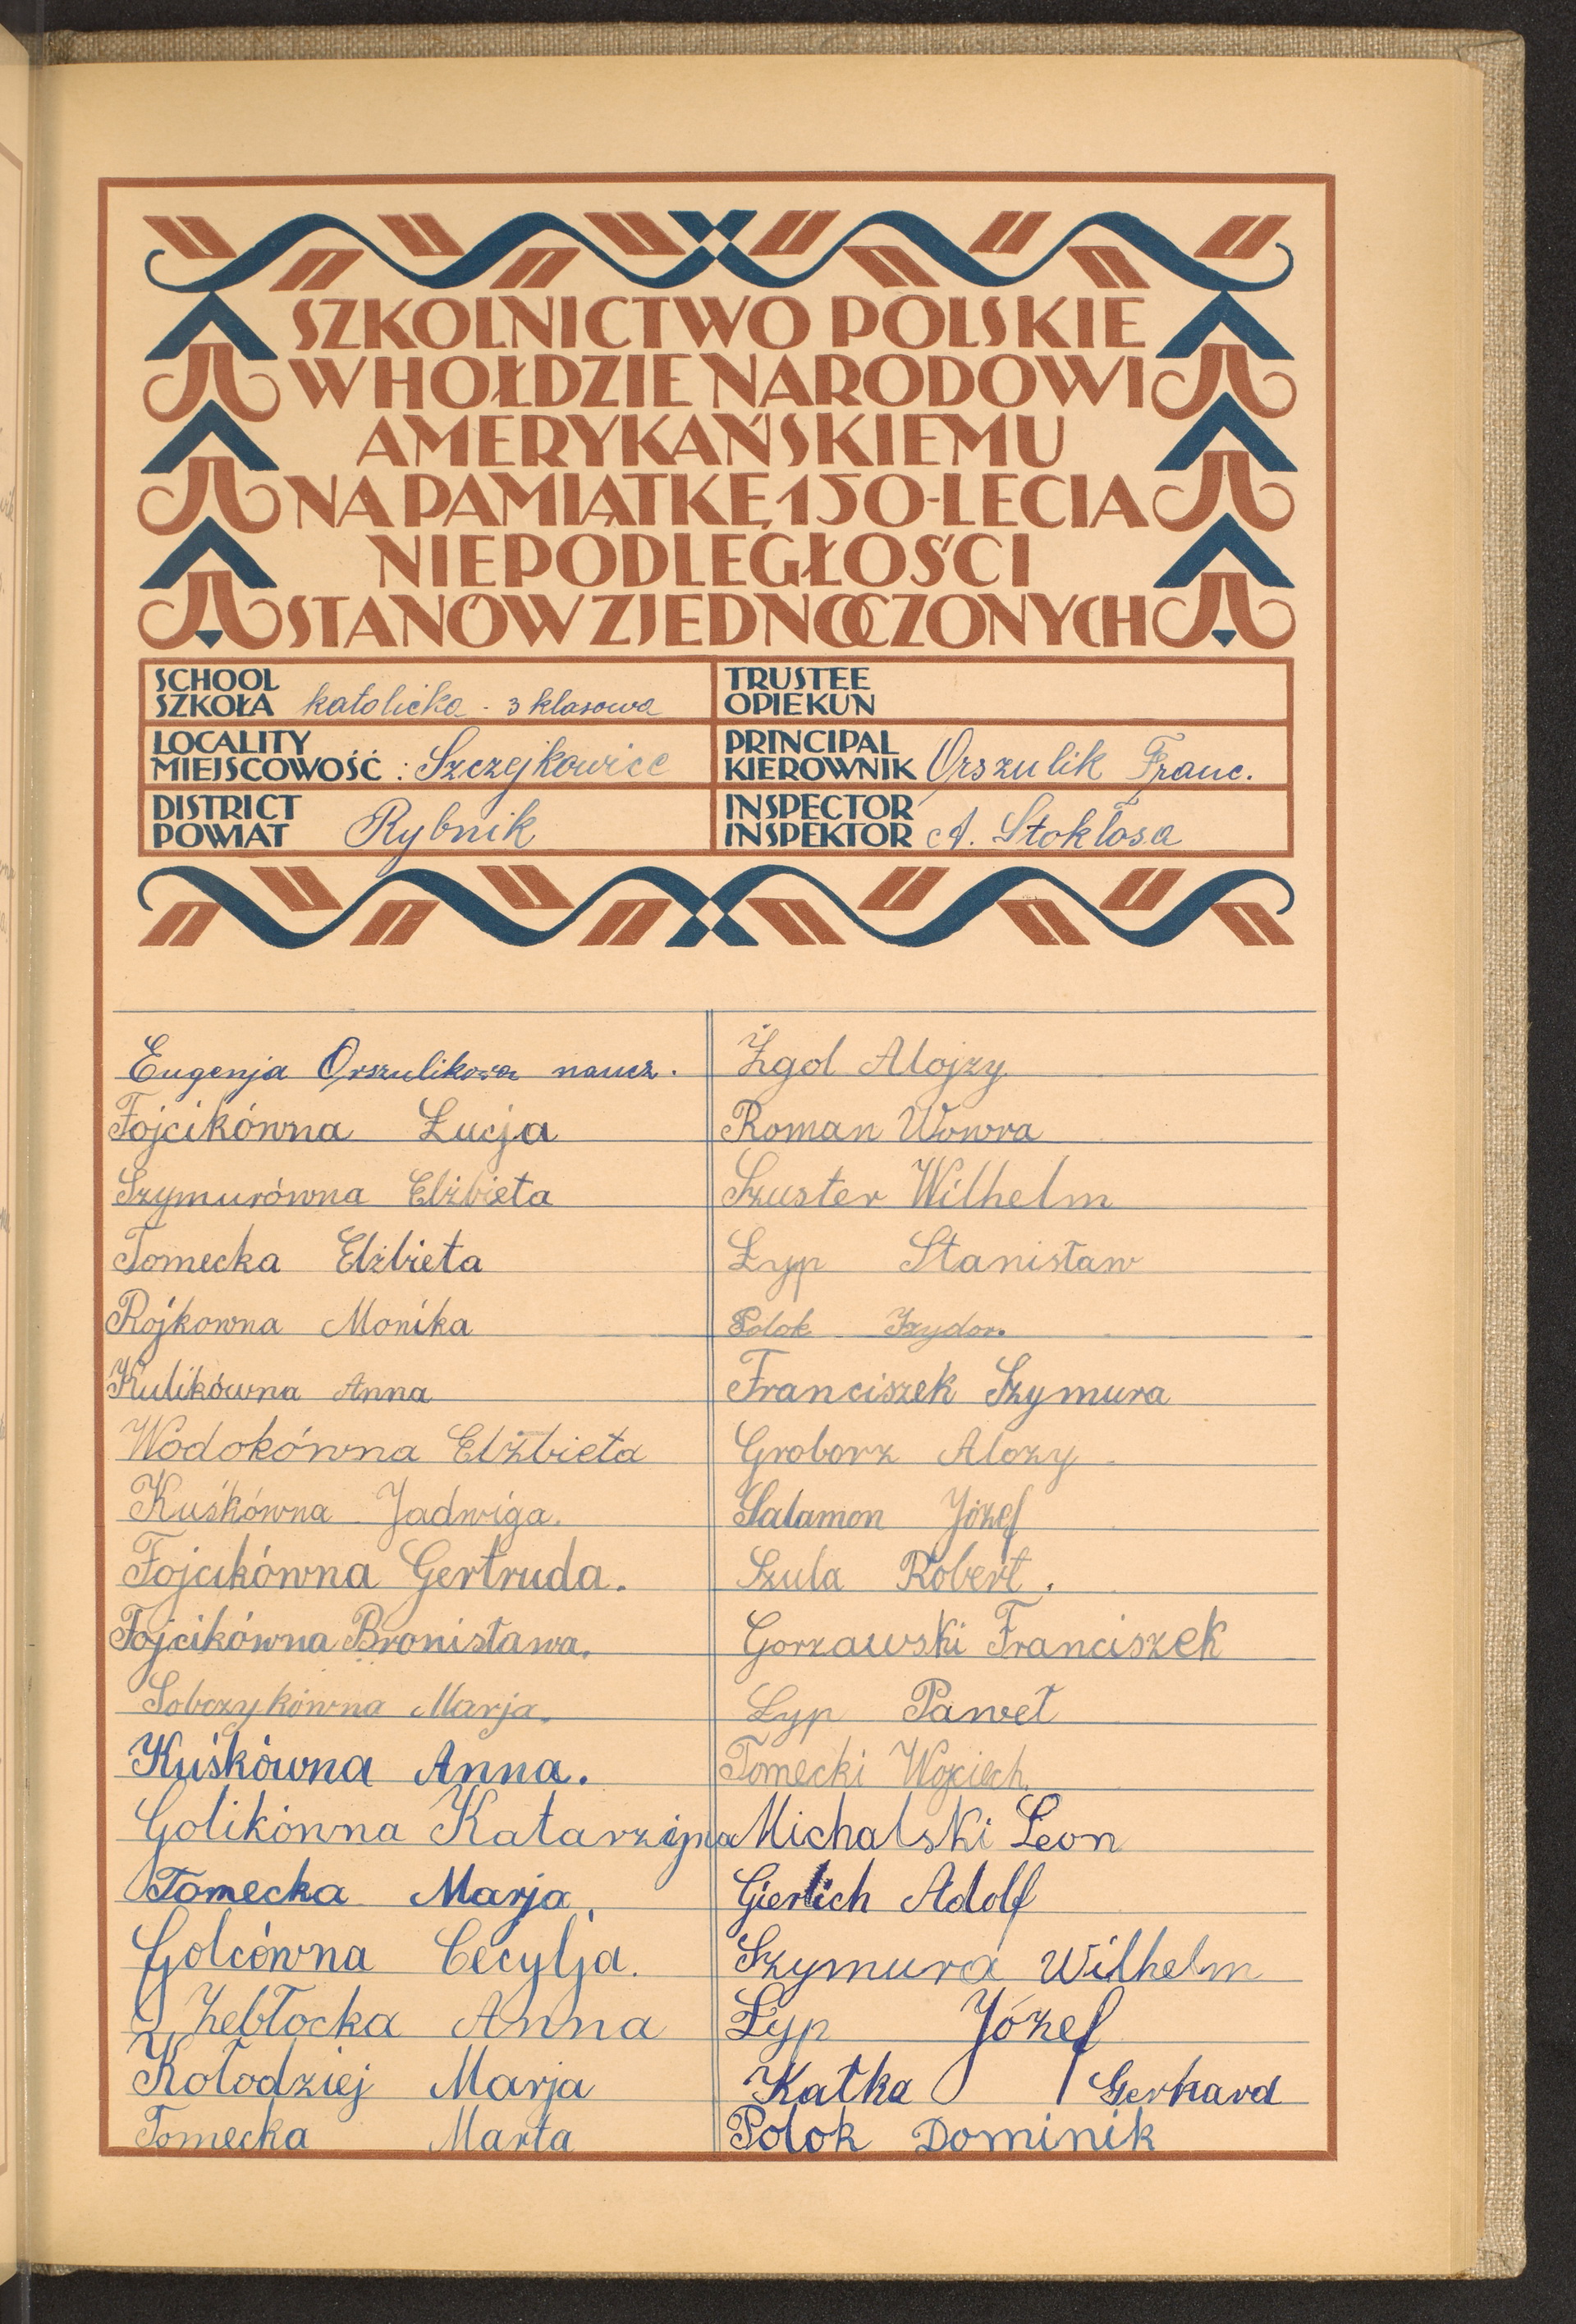 SZKOLNICTWO POLSKIE
W HOŁDZIE NARODOWI
AMERYKAŃSKIEMU
NA PAMIĄTKĘ 150-LECIA
NIEPODLEGŁOŚCI
STANÓW ZJEDNOCZONYCH
SCHOOL
SZKOŁA katolicka - 3 klasowa
TRUSTEE
OPIEKUN
LOCALITY
MIEJSCOWOŚĆ : Szczejkowice
PRINCIPAL
KIEROWNIK Orszulik Franc.
DISTRICT
POWIAT Rybnik
INSPECTOR
INSPEKTOR A. Stokłosa
Eugenja Orszulikowa naucz.
Fojcikówna Łucja
Szymurówna Elżbieta
Tomecka Elżbieta
Rojkowna Monika
Kulikówna Anna
Wodokówna Elżbieta
Kuśkówna Jadwiga.
Fojcikówna Gertruda.
Fojcikówna Bronisława.
Sobczykówna Marja.
Kuśkówna Anna.
Golikówna Katarzyna
Tomecka Marja.
Golcówna Cecylja.
Zebłocka Anna
Kołodziej Marja
Tomecka Marta
Żgol Alojzy
Roman Wowra
Szuster Wilhelm
Łyp Stanisław
Polok Izydor.
Franciszek Szymura
Groborz Alozy
Salamon Józef
Szula Robert.
Gorzawski Franciszek
Łyp Paweł
Tomecki Wojciech.
Michalski Leon
Gierlich Adolf
Szymura Wilhelm
Łyp Józef
Katka Gerhard
Polok Dominik